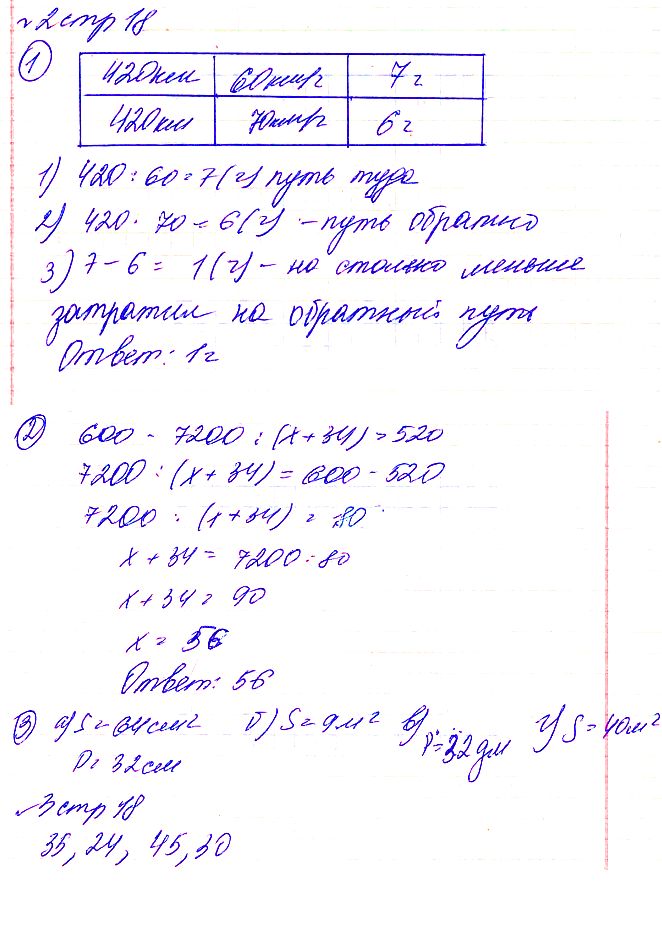 №2 стр 18
1
420км 60км/г 7г
420км 70км/г 6г
1) 420:60=7(г) путь туда
2) 420:70=6(г) – путь обратно
3) 7-6= 1(г) – на столько меньше
затратил на обратный путь
Ответ: 1г
2 600 - 7200 : (х+34)=520
7200 : (х+34) = 600-520
7200 : (х+34) = 80
х+34= 7200:80
х+34= 90
х= 56
Ответ: 56
3 а) S=64см² б) S=9м² в) P=32дм г) S=40м²
P= 32см
№3 стр 18
35, 24, 45, 30